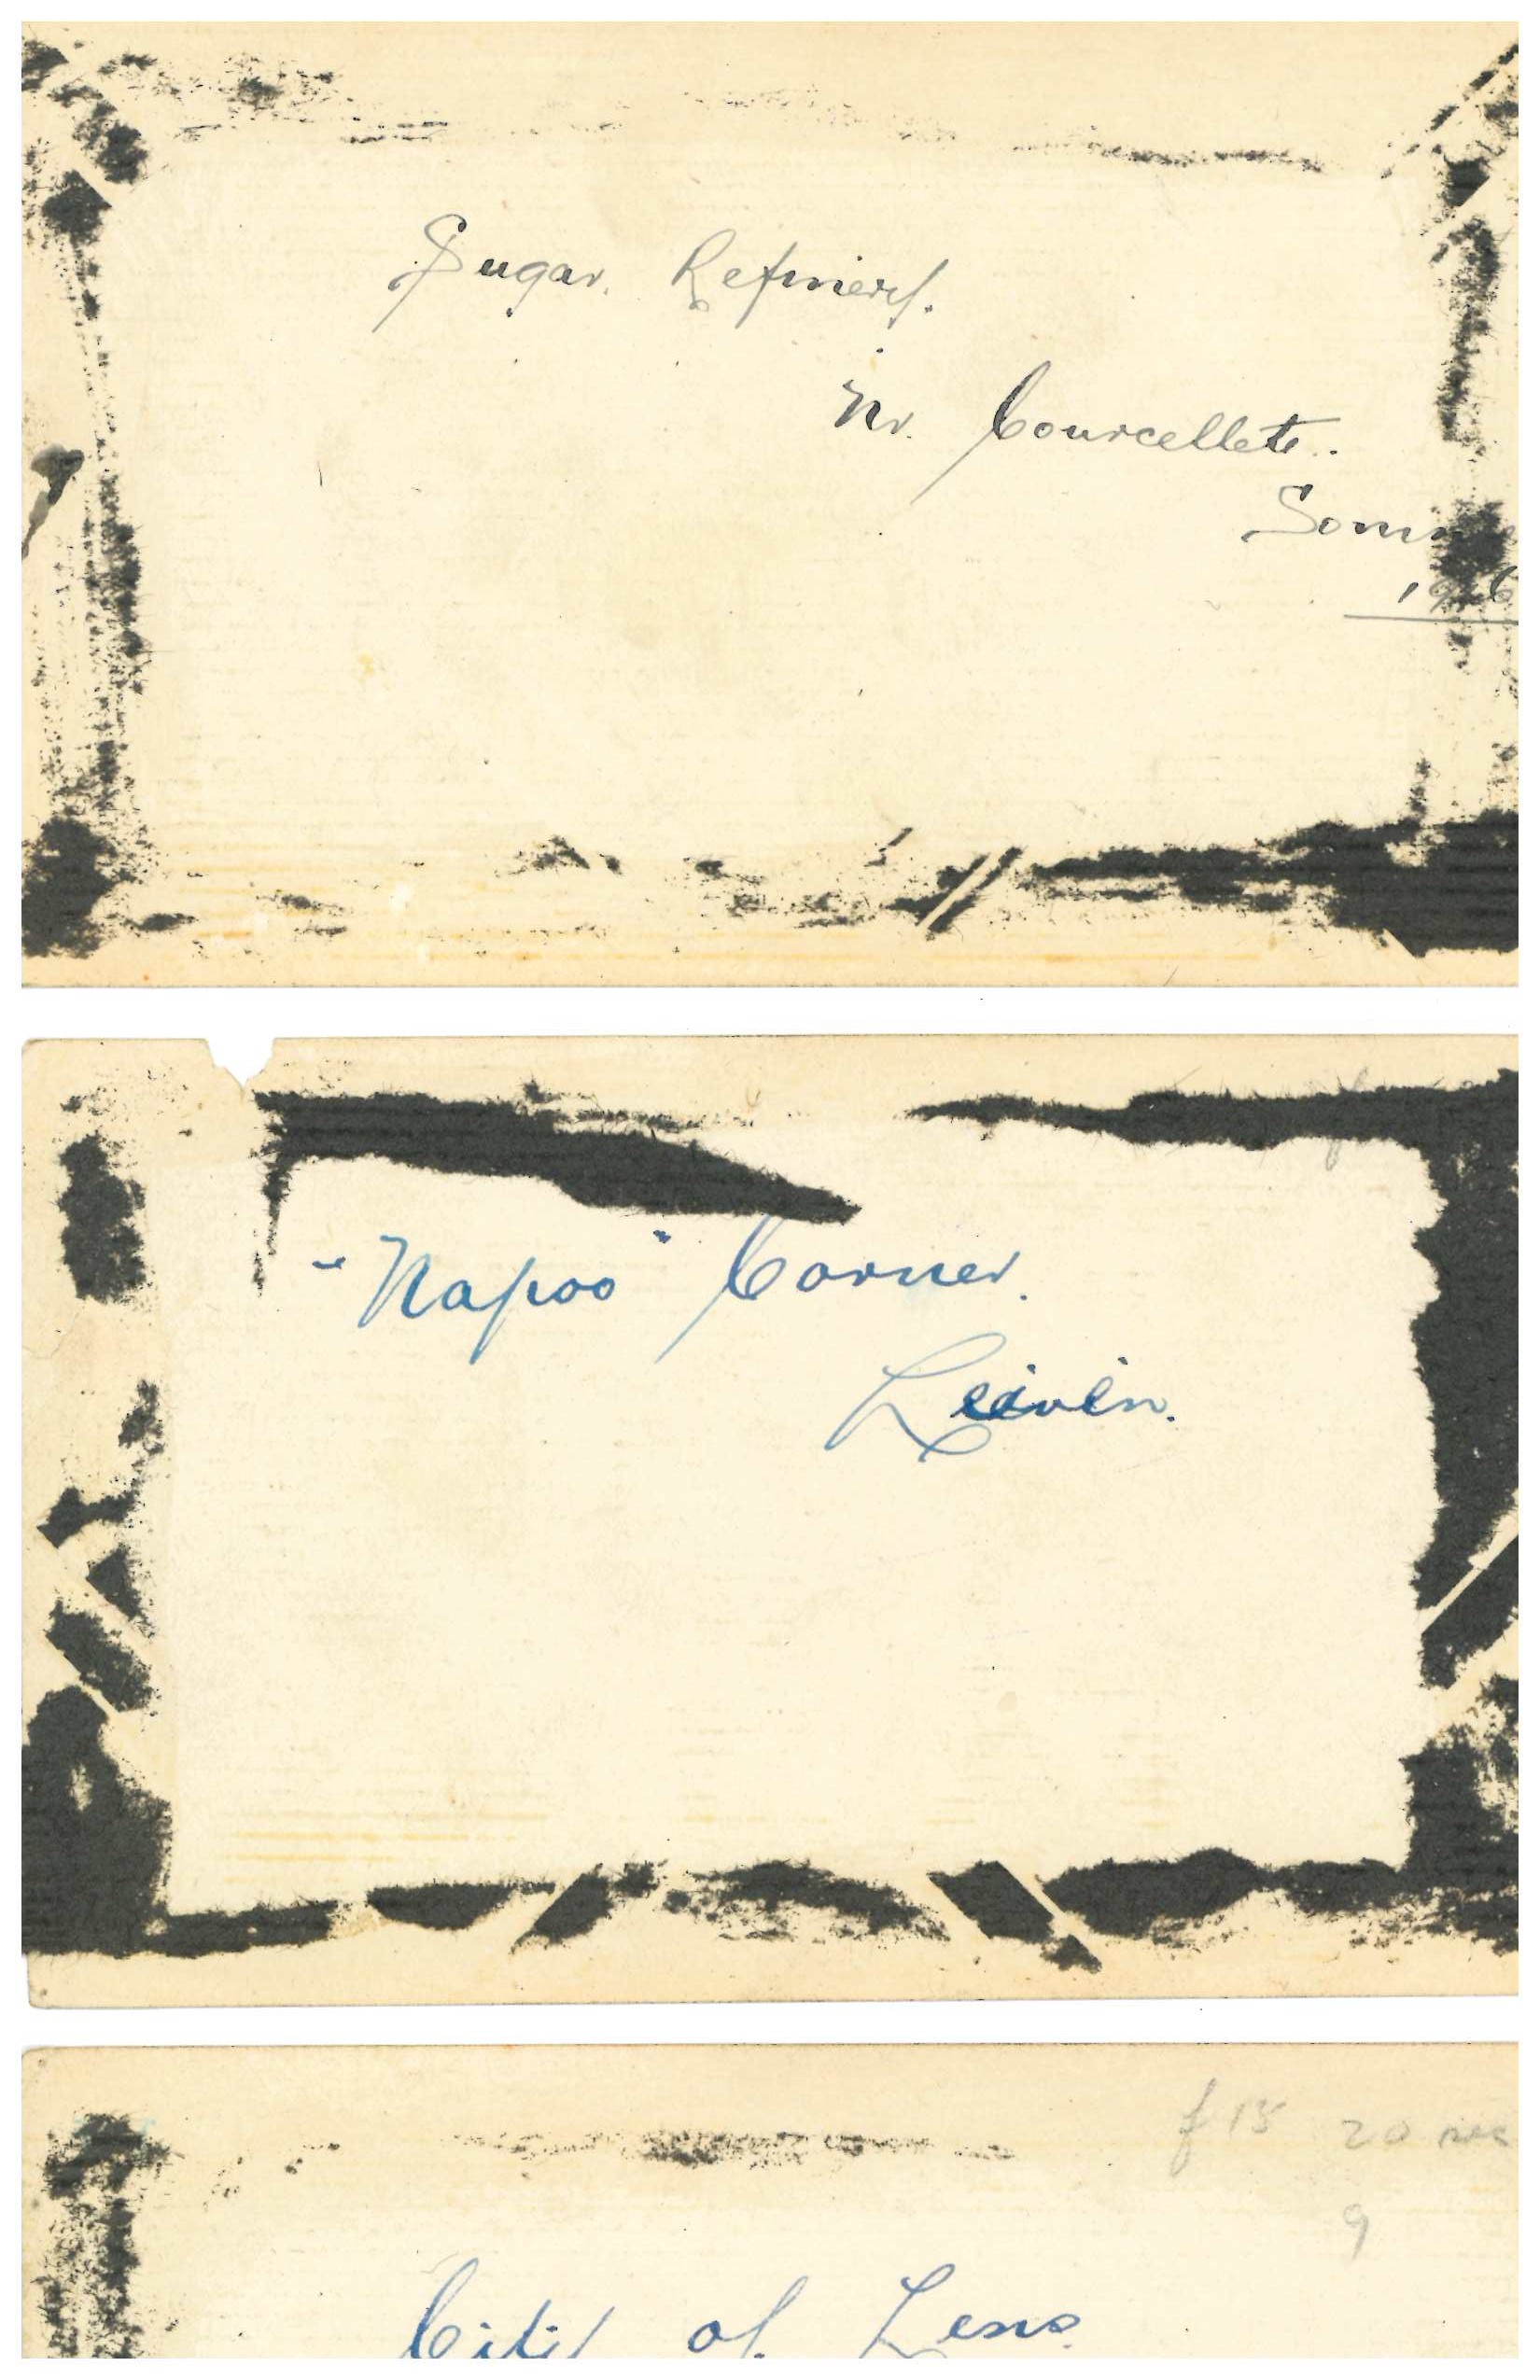 Sugar. Refinery.
Nr. Courcellete.
Somm
1916
"Napoo" Corner.
Leivin.
f 15 20 sec
9
City of Lens